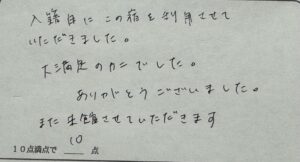 入籍日にこの宿を利用させて
いただきました。
大満足のカニでした。
ありがとうございました。
また来館させていただきます
10点満点で 10 点